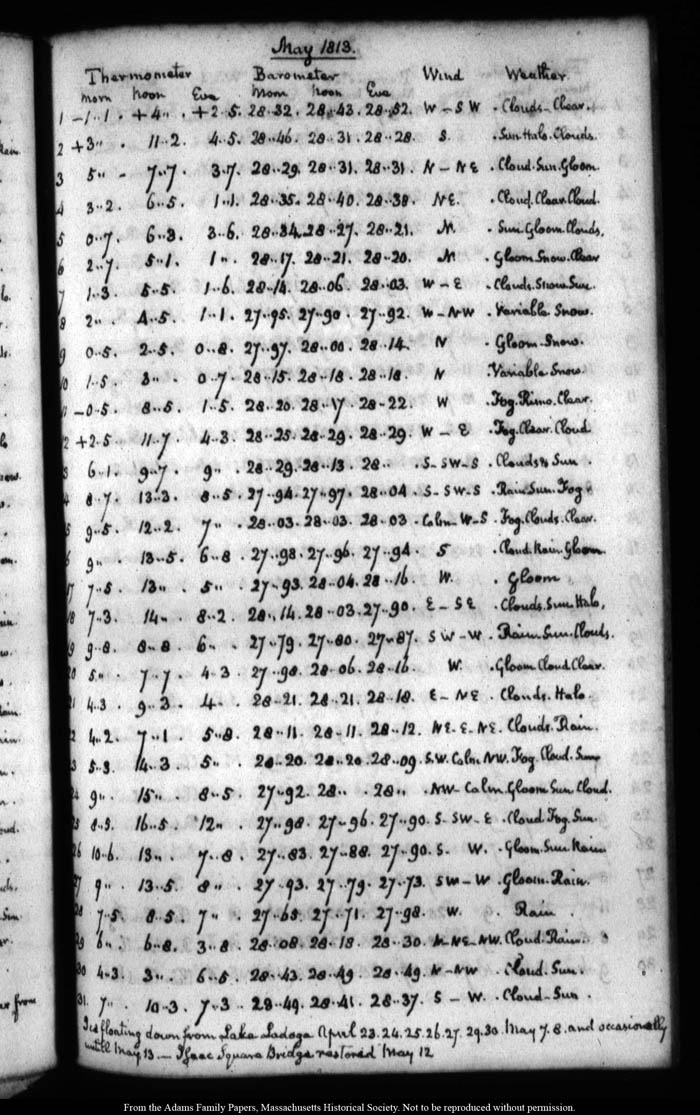 May 1813.
Thermometer Barometer Wind Weather.
morn noon Eve Morn noon Eve
1 -1..1. +4.. +2..5. 28-32. 28-43. 28-52. W-SW. Clouds-Clear.
2 +3.. 11..2. 4..5. 28-46. 28-31. 28-28. S. Sun. Halo. Clouds.
3 5.. 7..7. 3..7. 28-29. 28-31. 28-31. N-NE. Cloud. Sun. Gloom
4 3..2. 6..5. 1..1. 28-35. 28-40. 28-38. NE. Cloud. Clear. Cloud.
5 0..7. 6..3. 3..6. 28-34. 28-27. 28-21. N. Sun. Gloom. Clouds.
6 2..7. 5..1. 1.. 28-17. 28-21. 28-20. N. Gloom. Snow. Clear
7 1..3. 5..5. 1..6. 28-14. 28-06. 28-03. W-E. Clouds. Snow. Sun.
8 2.. 4..5. 1..1. 27-95. 27-90. 27-92. W-NW. Variable. Snow.
9 0..5. 2..5. 0..8. 27-97. 28-00. 28-14. N. Gloom-Snow.
10 1..5. 3.. 0..7. 28-15. 28-18. 28-18. N. Variable. Snow.
-0..5. 8..5. 1..5. 28-20. 28-17. 28-22. W. Fog. Rime. Clear.
2 +2..5. 11..7. 4..3. 28-25. 28-29. 28-29. W-E. Fog. Clear. Cloud
3 6..1. 9..7. 9.. 28-29. 28-13. 28.. S-SW-S. Clouds & Sun.
8..7. 13..3. 8..5. 27-94. 27-97. 28-04. S-SW-S. Rain. Sun. Fog.
5 9..5. 12..2. 7.. 28-03. 28-03. 28-03. Calm-W-S. Fog. Clouds. Clear.
6 9.. 13..5. 6..8. 27-98. 27-96. 27-94. S. Cloud. Rain. Gloom
17 7..5. 13.. 5.. 27-93. 28-04. 28-16. W. Gloom
18 7..3. 14.. 8..2. 28-14. 28-03. 27-90. E-SE. Clouds. Sun. Halo.
19 9..8. 8..8. 6.. 27-79. 27-80. 27-87. SW-W. Rain. Sun. Clouds.
20 5.. 7..7. 4..3. 27-98. 28-06. 28-16. W. Gloom. Cloud. Clear.
21 4..3. 9..3. 4.. 28-21. 28-21. 28-18. E-NE. Clouds. Halo.
2 4..2. 7..1. 5..8. 28-11. 28-11. 28-12. NE. E-NE. Clouds. Rain.
3 5..3. 14..3. 5.. 28-20. 28-20. 28-09. S.W. Calm. NW. Fog. Cloud. Sun
24 9.. 15.. 8..5. 27-92. 28.. 28.. NW-Calm. Gloom. Sun. Cloud.
25 8..5. 16..5. 12.. 27-98. 27-96. 27-90. S-SW-E. Cloud. Fog. Sun.
26 10..6. 13.. 7..8. 27-83. 27-88. 27-90. S. W. Gloom. Sun. Rain
27 9.. 13..5. 8.. 27-93. 27-79. 27-73. SW-W. Gloom. Rain.
28 7..5. 8..5. 7.. 27-65. 27-71. 27-98. W. Rain.
29 6.. 6..8. 3..8. 28-08. 28-18. 28-30. N-NE-NW. Cloud. Rain.
30 4..3. 3.. 6..5. 28-43. 28-49. 28-49. N-NW. Cloud. Sun.
31. 7.. 10..3. 7..3. 28-49. 28-41. 28-37. S-W. Cloud-Sun.
Ice floating down from Lake Ladoga April 23. 24. 25. 26. 27. 29. 30. May 7. 8. and occasionally
until May 13 - Isaac Square Bridge restored May 12
From the Adams Family Papers, Massachusetts Historical Society. Not to be reproduced without permission.